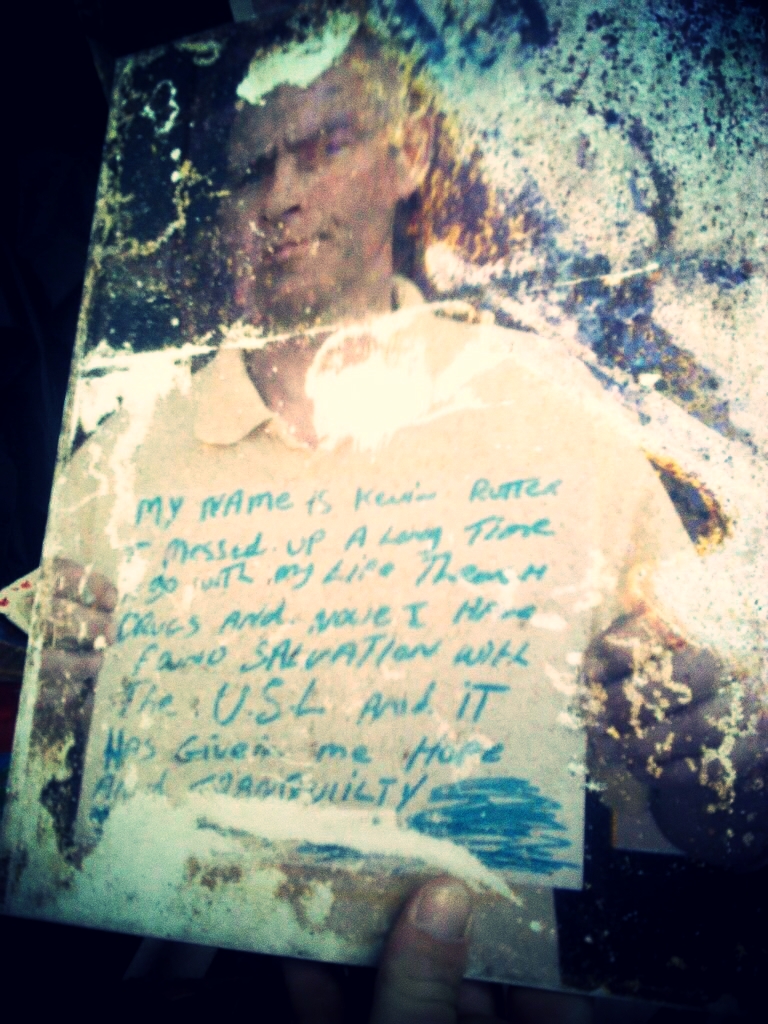 MY NAME IS Kevin RUTTER
I Messed UP A Long Time
Ago with my Life Through
DRUGS AND NOWE I HAve
found SALVATION with
The U.S.L And iT
HAS Given me HOPE
AND TRANQUILITY